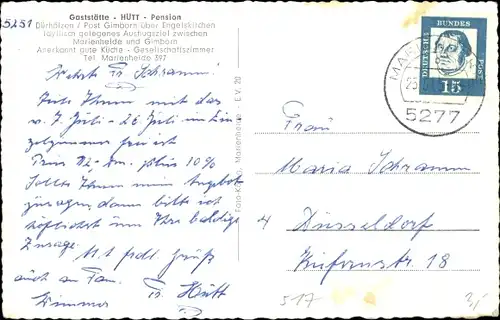 Gaststätte - HÜTT - Pension
Dürhölzen / Post Gimborn über Engelskirchen
Idyllisch gelegenes Ausflugsziel zwischen
Marienheide und Gimborn
Anerkannt gute Küche - Gesellschaftszimmer
Tel. Marienheide 397
Frau Schramm!
Teile Ihnen mit das
v. 7 Juli - 26 Juli ein Ein-
zelzimmer frei ist
Preis 12,- Dm. plus 10%
Sollte Ihnen mein Angebot
zusagen, dann bitte ich
höflichst um Ihre baldige
Zusage.
Mit frdl. Gruß
auch an Fam.
Fr. Hütt
Marienheide - E.V. 20
DEUTSCHE BUNDESPOST
15
5277
Frau
Maria Schramm
4 Düsseldorf
18
517